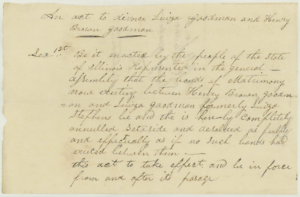 An act to divorce Luiza goodman and Henry
Brown goodman
Sec 1st Be it enacted by the people of the State
of Illinois Represented in the general
assembly that the bonds of Matrimony
now existing between Henry Brown goodm
an and Luiza goodman formerly Luiza
Stephens be and the is hereby Completly
annulled Set aside and desolved as fully
and effectually as if no Such bonds had
existed between them
this act to take effect and be in force
from and after its passage